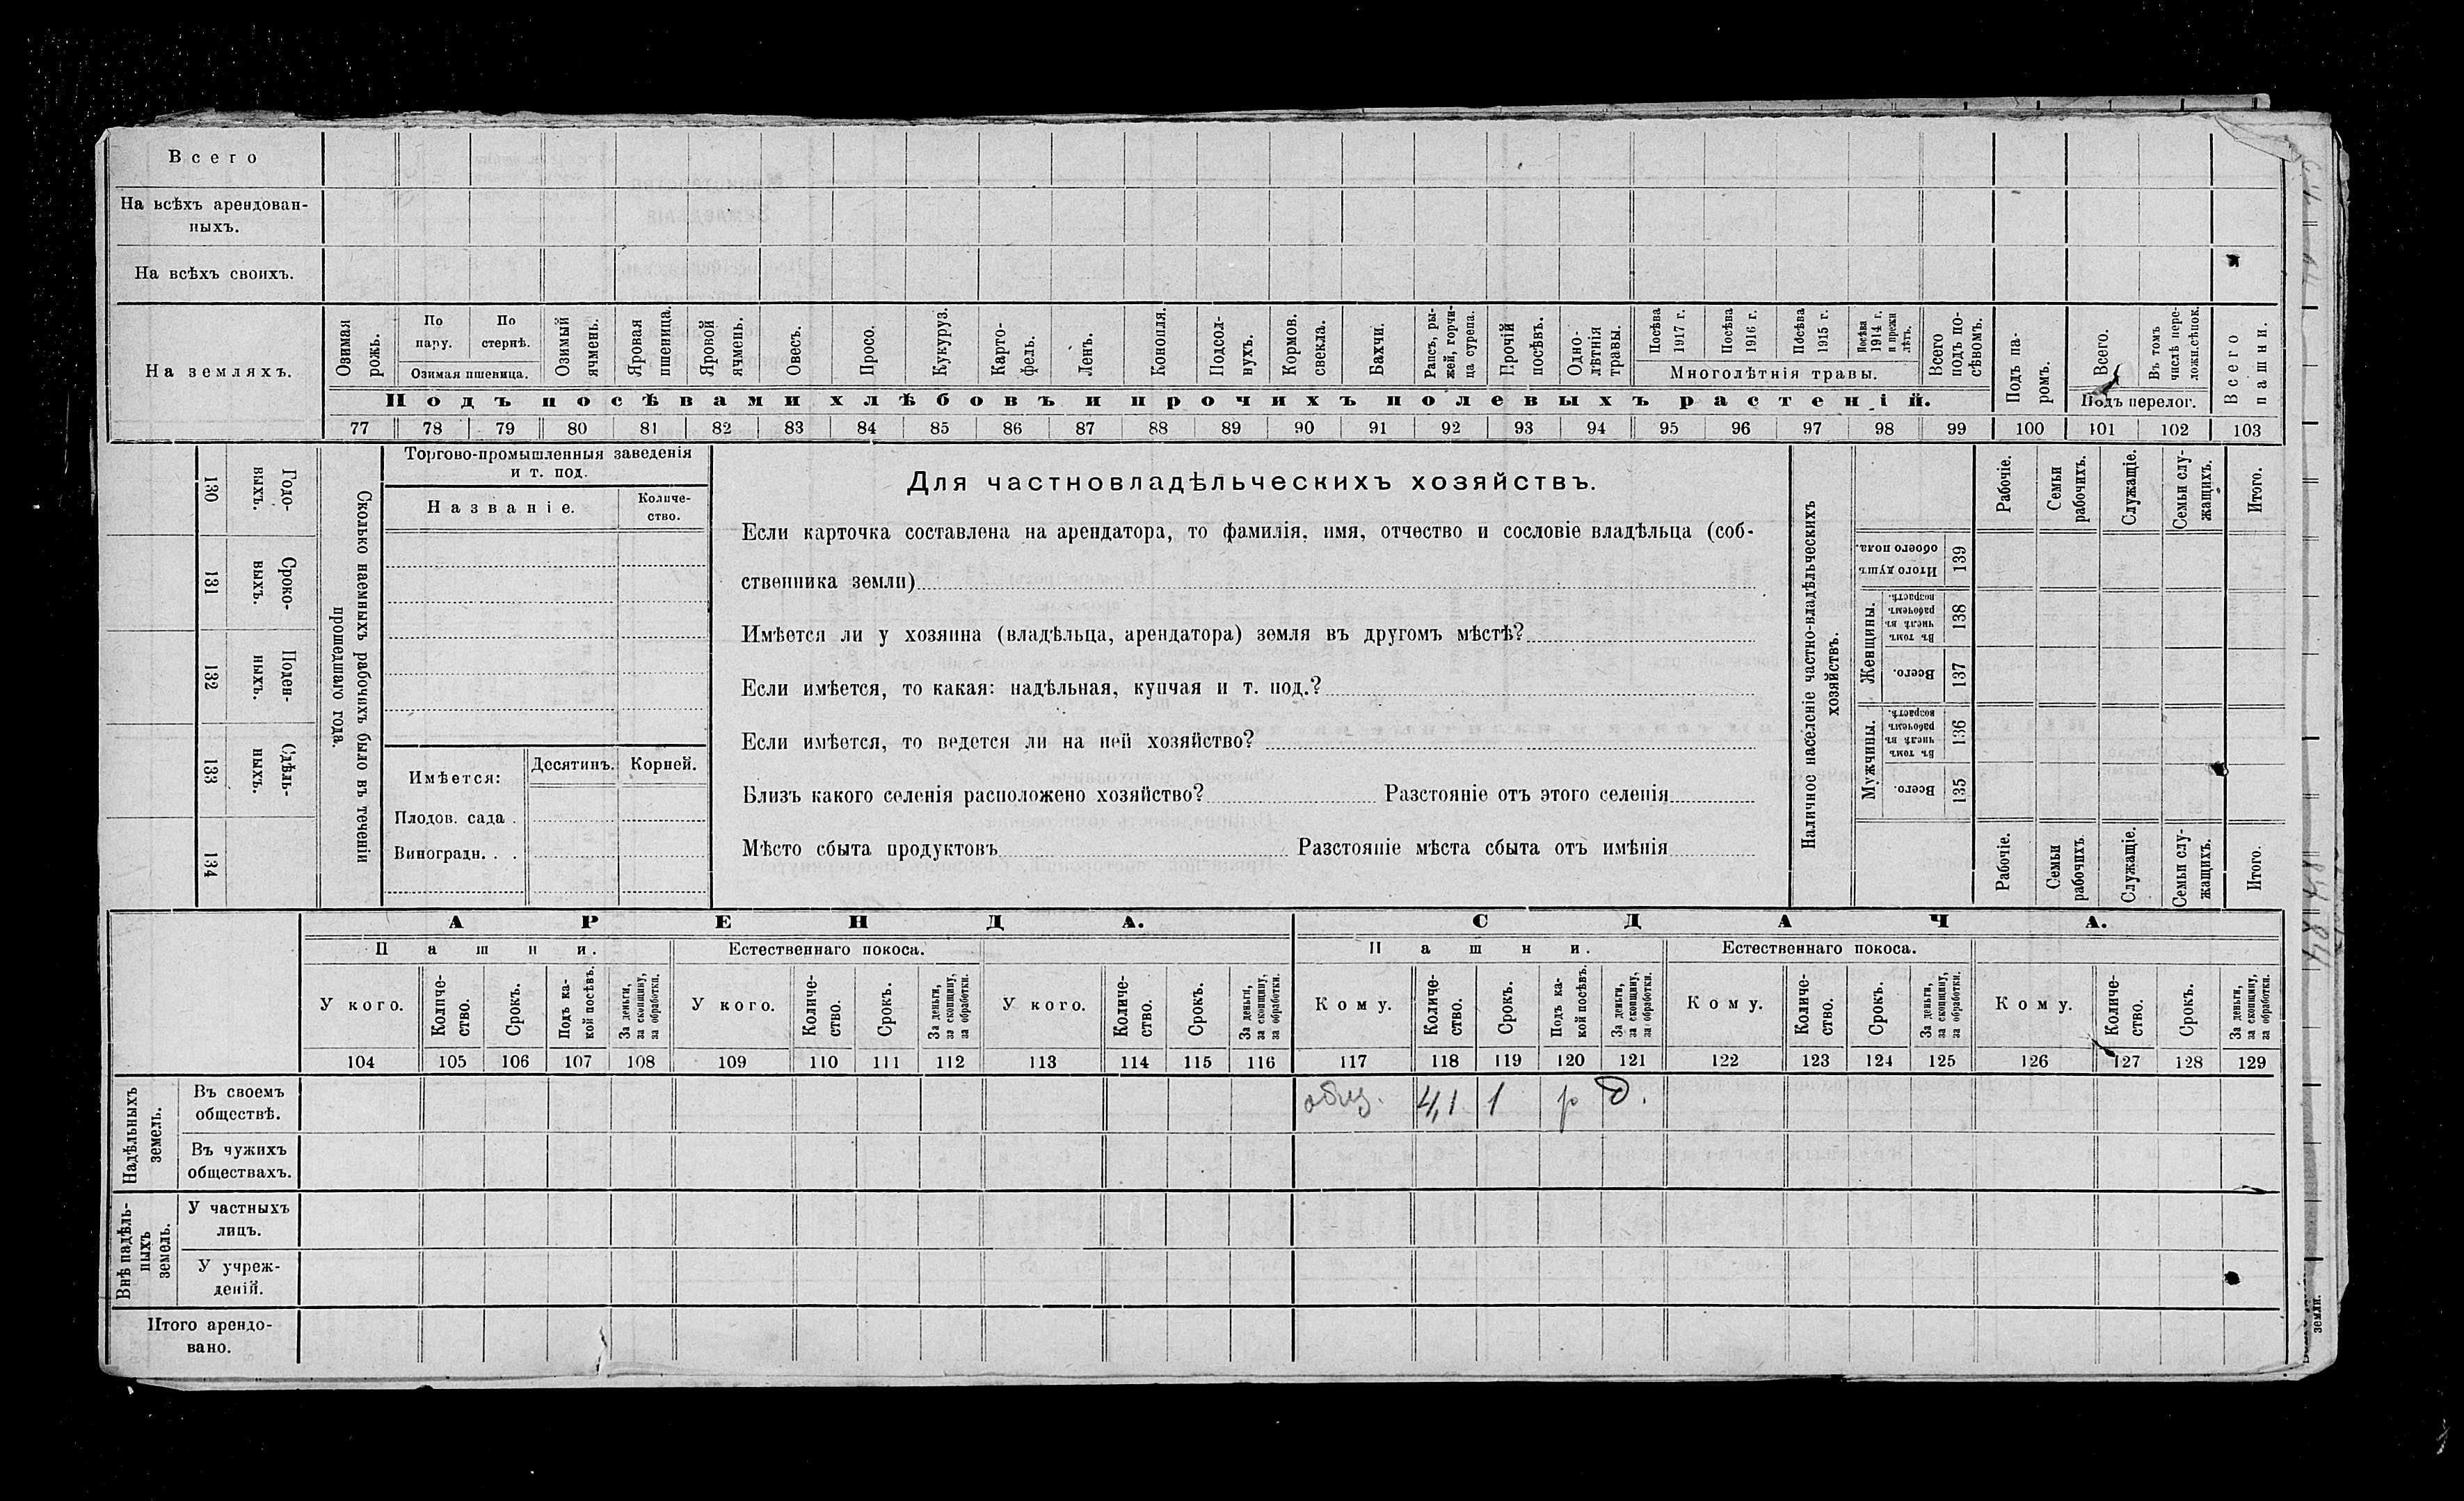 Всего
На всѣхъ арендован-
ныхъ.
На всѣхъ своихъ.
На земляхъ.
Озимая рожь.
По пару.
По стернѣ.
Озимая пшеница.
Озимый ячмень.
Яровая пшеница.
Яровой ячмень.
Овесъ.
Просо.
Кукуруз.
Карто-
фель.
Ленъ.
Конопля.
Подсол-
нухъ.
Кормов. свекла.
Бахчи.
Рапсъ, ры-
жей, горчи-
ца сурепа.
Прочій посѣвъ.
Одно-
лѣтнія травы.
Посѣва 1917 г.
Посѣва 1916 г.
Посѣва 1915 г.
Посѣва 1914 г. и прежн лѣтъ.
Многолѣтнія травы.
Всего подъ по-
сѣвомъ.
Подъ па-
ромъ.
Всего.
Въ томъ числѣ пере-
ложн.сѣнок.
Подъ перелог.
Всего пашни.
Подъ посѣвами хлѣбовъ и прочихъ полевыхъ растеній.
77 78 79 80 81 82 83 84 85 86 87 88 89 90 91 92 93 94 95 96 97 98 99 100 101 102 103
130 Годо-
выхъ.
131 Сроко-
выхъ.
132 Поден-
ныхъ.
133 Сдѣль-
ныхъ.
134
Сколько наемныхъ рабочихъ было въ теченіи
прошедшаго года.
Торгово-промышленныя заведенія
и т. под.
Названіе.
Количе-
ство.
Имѣется:
Десятинъ.
Корней.
Плодов. сада .
Виноградн. . .
Для частновладѣльческихъ хозяйствъ.
Если карточка составлена на арендатора, то фамилія, имя, отчество и сословіе владѣльца (соб-
ственника земли)
Имѣется ли у хозяина (владѣльца, арендатора) земля въ другомъ мѣстѣ?
Если имѣется, то какая: надѣльная, купчая и т. под.?
Если имѣется, то ведется ли на ней хозяйство?
Близъ какого селенія расположено хозяйство? Разстояніе отъ этого селенія
Мѣсто сбыта продуктовъ Разстояніе мѣста сбыта отъ имѣнія
Наличное населеніе частно-владѣльческихъ
хозяйствъ.
Рабочіе.
Семьи рабочихъ.
Служащіе.
Семьи слу-
жащихъ.
Итого.
Итого душъ обоего пола. 139
Женщины.
Въ томъ числѣ въ рабочемъ возрастѣ. 138
Всего. 137
Мужчины.
Въ томъ числѣ въ рабочемъ возрастѣ. 136
Всего. 135
Рабочіе.
Семьи рабочихъ.
Служащіе.
Семьи слу-
жащихъ.
Итого.
АРЕНДА. СДАЧА.
Пашни. Естественнаго покоса. Пашни. Естественнаго покоса.
У кого.
Количе-
ство.
Срокъ.
Подъ ка-
кой посѣвъ.
За деньги, за скопщину, за обработки.
У кого.
Количе-
ство.
Срокъ.
За деньги, за скопщину, за обработки.
У кого.
Количе-
ство.
Срокъ.
За деньги, за скопщину, за обработки.
Кому.
Количе-
ство.
Срокъ.
Подъ ка-
кой посѣвъ.
За деньги, за скопщину, за обработки.
Кому.
Количе-
ство.
Срокъ.
За деньги, за скопщину, за обработки.
Кому.
Количе-
ство.
Срокъ.
За деньги, за скопщину, за обработки.
104 105 106 107 108 109 110 111 112 113 114 115 116 117 118 119 120 121 122 123 124 125 126 127 128 129
Надѣльныхъ земель.
Въ своемъ
обществѣ.
4,1 1 р д.
Въ чужихъ
обществахъ.
Внѣ надѣль-
ныхъ земель.
У частныхъ
лицъ.
У учреж-
деній.
Итого арендо-
вано.
земли.